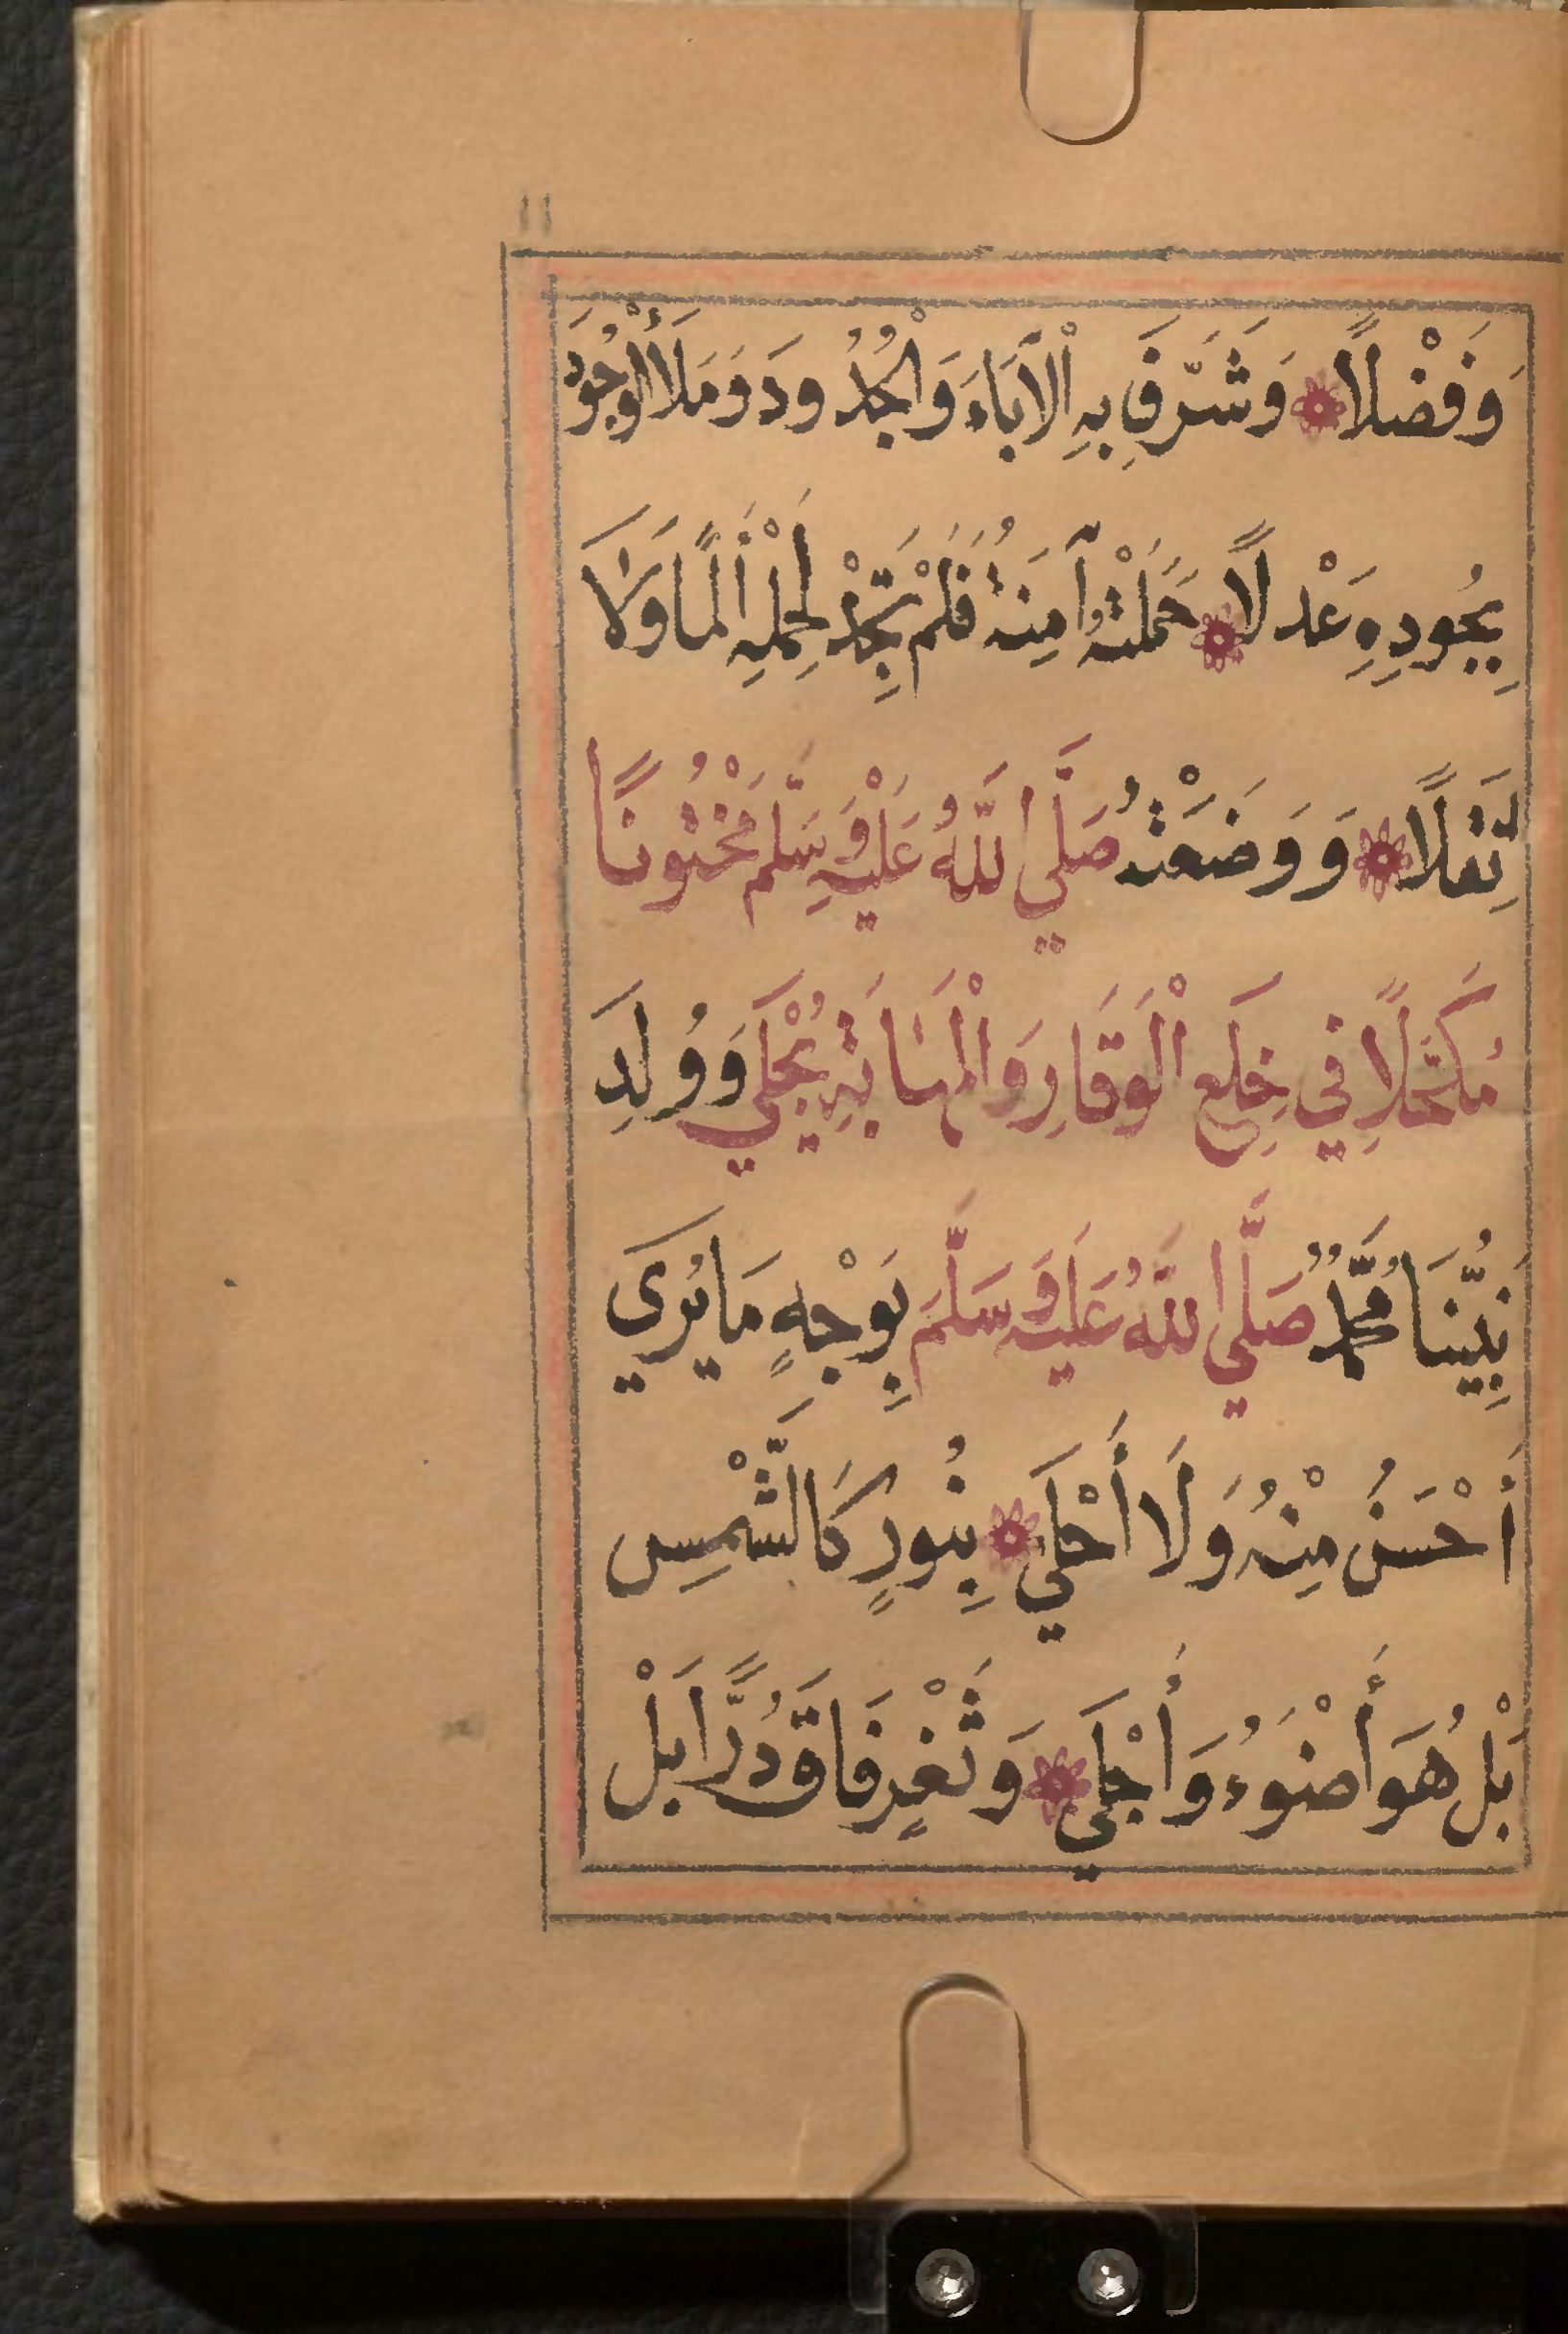 ١١
وَفَضْلًا وَشَرَّفَ بِهِ الْاٰبَاءَ وَالْجُدُودَ وَمَلَأَ الْوُجُوْدَ
بِجُودِهِ عَدْلًا حَمَلَتْهُ آمِنَةُ فَلَمْ تَجِدْ لِحَمْلِهِ أَلَمًا وَلَا
ثِقَلًا وَوَضَعَتْهُ صَلَّي اللّٰهُ عَلَيْهِ وَسَلَّمَ مَخْتُونًا
مُكَحَّلًا فِي خِلَعِ الْوَقَارِ وَالْمَهَابَةِ يُجْلَي وَوُلِدَ
نَبِيُّنَا مُحَمَّدٌ صَلَّي اللّٰهُ عَلَيْهِ وَسَلَّمَ بِوَجْهٍ مَا يُرَي
أَحْسَنُ مِنْهُ وَلَا أَحْلَي بِنُورٍ كَالشَّمْسِ
بَلْ هُوَ أَضْوَءُ وَأَجْلَي وَثَغْرٍ فَاقَ دُرًّا بَلْ